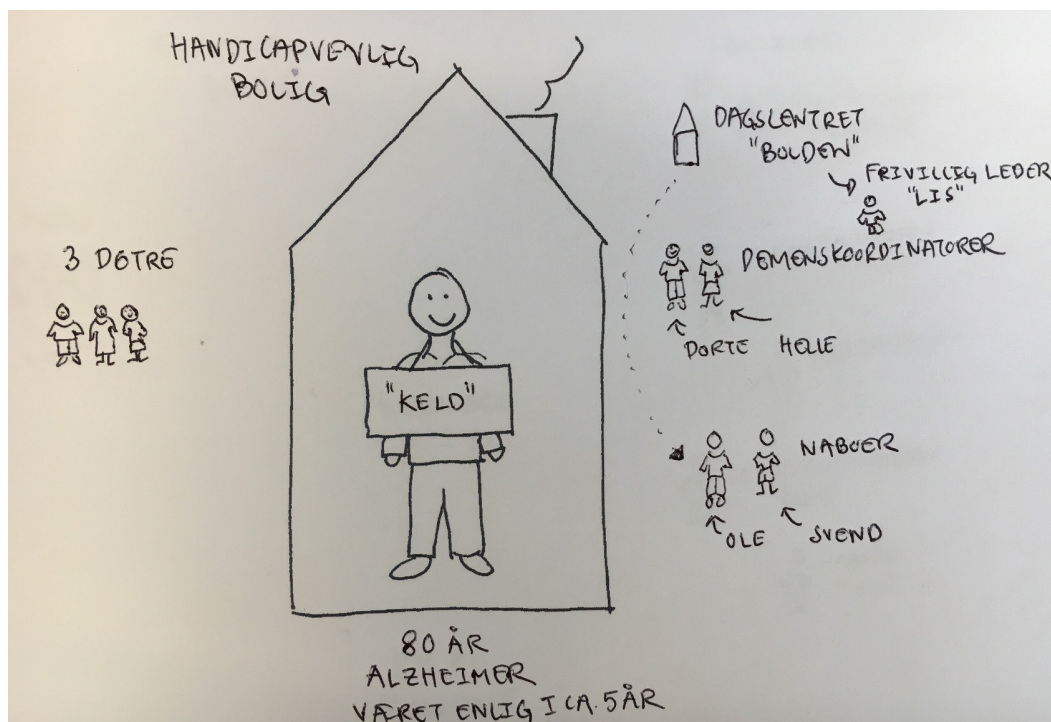 HANDICAPVENLIG
BOLIG
DAGSCENTRET
"BOLDEN"
FRIVILLIG LEDER
"LIS"
3 DØTRE
DEMENSKOORDINATORER
DORTE HELLE
"KELD"
NABOER
OLE SVEND
80 ÅR
ALZHEIMER
VÆRET ENLIG I CA. 5 ÅR